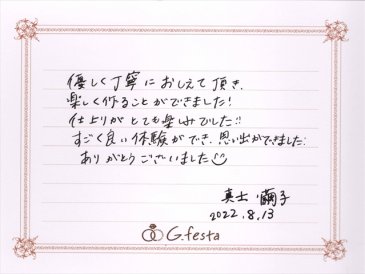 優しく丁寧におしえて頂き、
楽しく作ることができました!
仕上りがとても楽しみでした!!
すごく良い体験ができ、思い出ができました!
ありがとうございました
真士 繭子
2022.8.13
G.festa